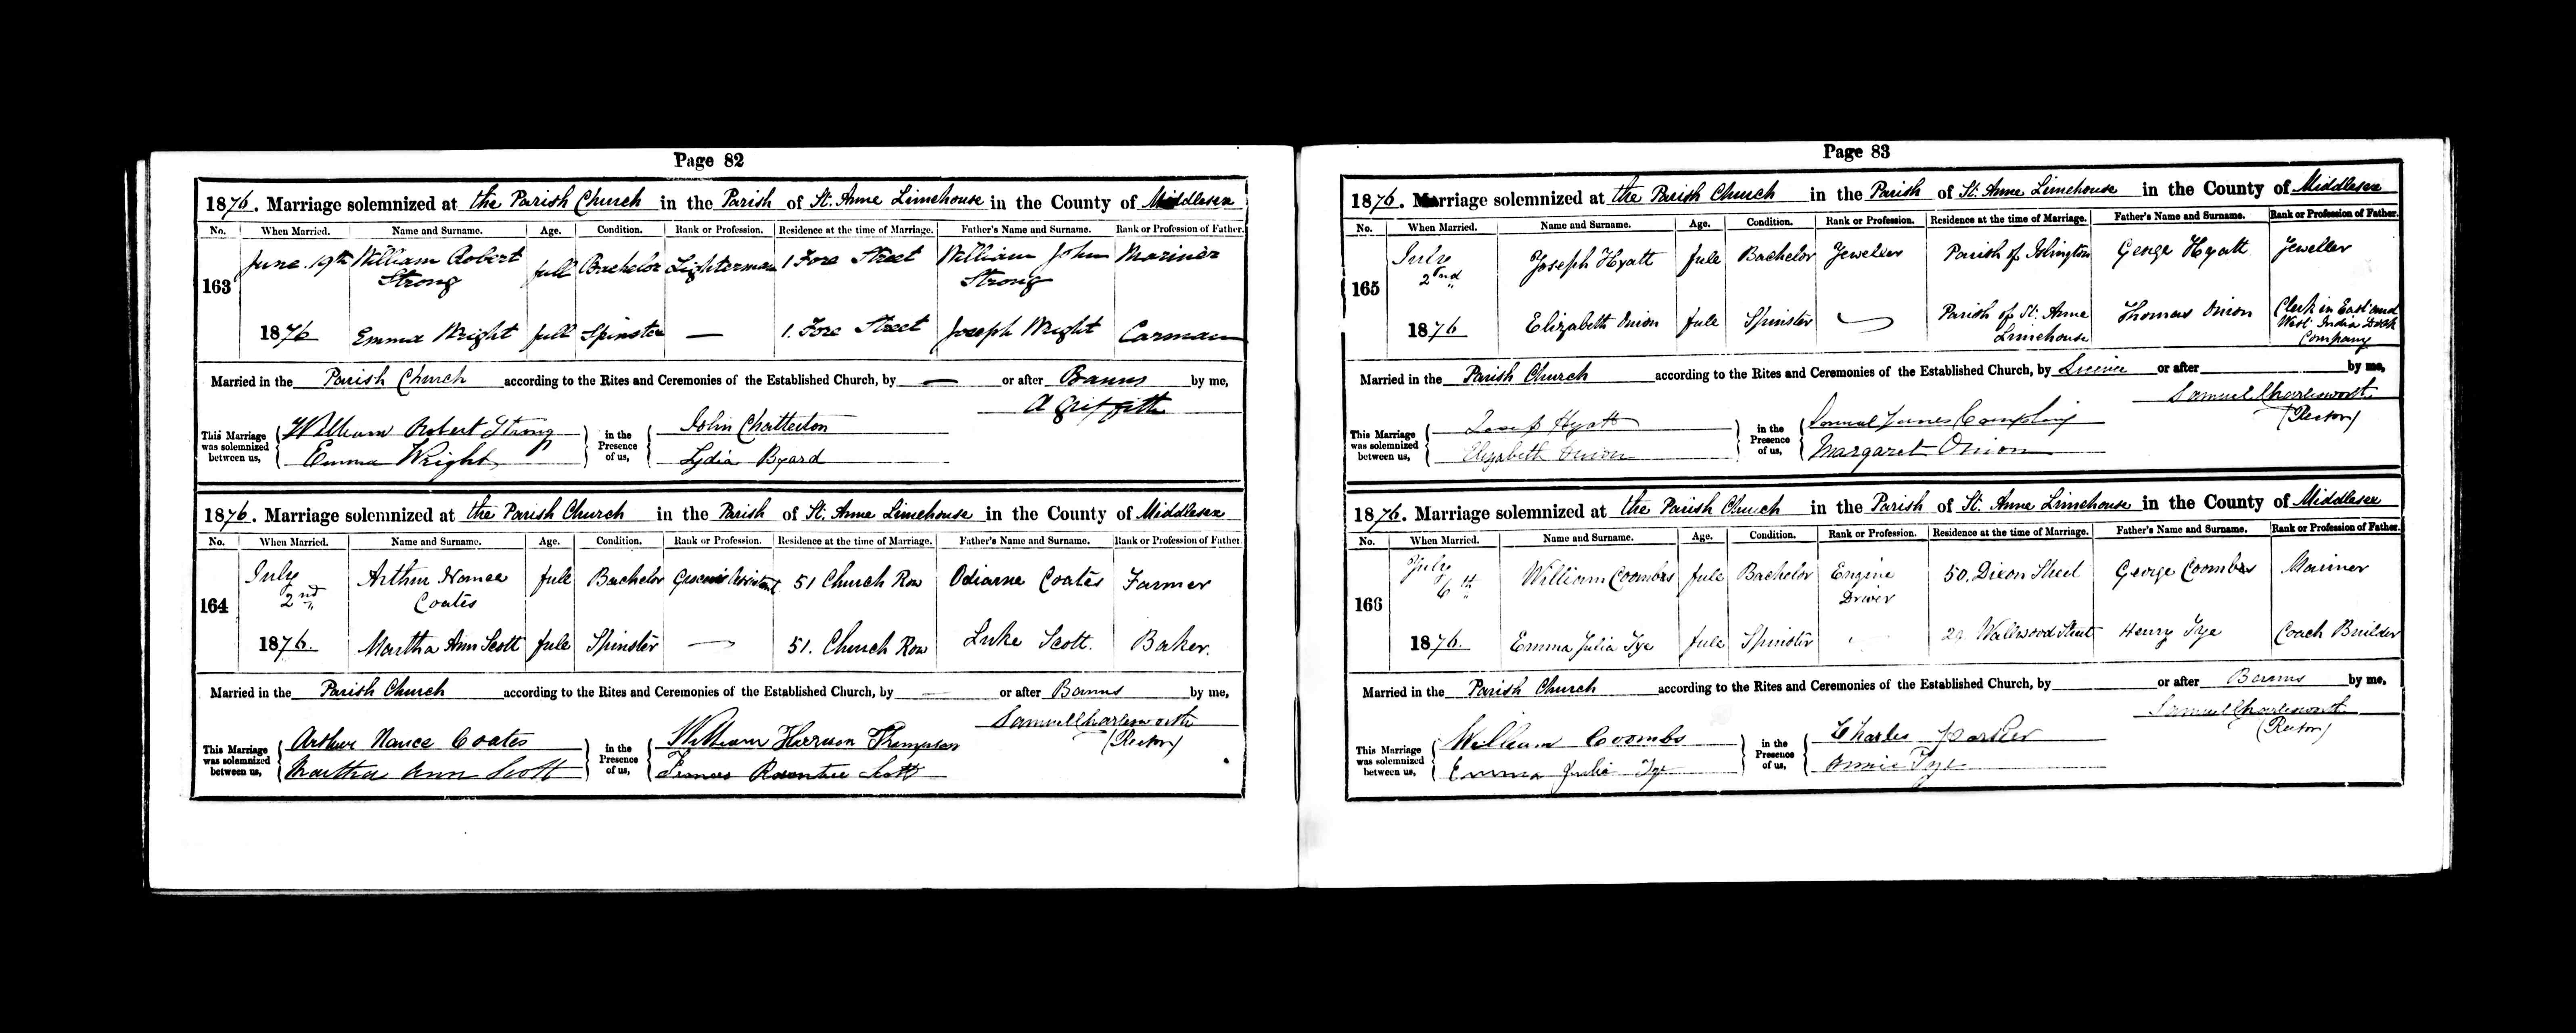 Page 82
1876. Marriage solemnized at the Parish Church in the Parish of St. Anne Limehouse in the County of Middlesex
No. When Married. Name and Surname. Age. Condition. Rank or Profession. Residence at the time of Marriage. Father's Name and Surname. Rank or Profession of Father.
163 June 19th William Robert Strong full Bachelor Lighterman 1 Fore Street William John Strong Mariner
1876 Emma Wright full Spinster — 1. Fore Street Joseph Wright Carman
Married in the Parish Church according to the Rites and Ceremonies of the Established Church, by — or after Banns by me,
A Griffith
This Marriage was solemnized between us, William Robert Strong in the Presence of us, John Chatterton
Emma Wright Lydia Byard
1876. Marriage solemnized at the Parish Church in the Parish of St. Anne Limehouse in the County of Middlesex
No. When Married. Name and Surname. Age. Condition. Rank or Profession. Residence at the time of Marriage. Father's Name and Surname. Rank or Profession of Father.
164 July 2nd Arthur Nance Coates full Bachelor Assistant 51 Church Row Odiarne Coates Farmer
1876. Martha Ann Scott full Spinster — 51. Church Row Luke Scott. Baker.
Married in the Parish Church according to the Rites and Ceremonies of the Established Church, by — or after Banns by me,
Samuel Charlesworth
(Rector)
This Marriage was solemnized between us, Arthur Nance Coates in the Presence of us, William Harrison Thompson
Martha Ann Scott Frances Scott
Page 83
1876. Marriage solemnized at the Parish Church in the Parish of St. Anne Limehouse in the County of Middlesex
No. When Married. Name and Surname. Age. Condition. Rank or Profession. Residence at the time of Marriage. Father's Name and Surname. Rank or Profession of Father.
165 July 2nd Joseph Hyatt full Bachelor Jeweller Parish of Islington George Hyatt Jeweller
1876 Elizabeth Onion full Spinster Parish of St. Anne Limehouse Thomas Onion Clerk in East and West India Dock Company
Married in the Parish Church according to the Rites and Ceremonies of the Established Church, by Licence or after by me,
Samuel Charlesworth.
(Rector)
This Marriage was solemnized between us, Joseph Hyatt in the Presence of us, Samuel James Campling
Elizabeth Onion Margaret Onion
1876. Marriage solemnized at the Parish Church in the Parish of St. Anne Limehouse in the County of Middlesex
No. When Married. Name and Surname. Age. Condition. Rank or Profession. Residence at the time of Marriage. Father's Name and Surname. Rank or Profession of Father.
166 July 6th William Coombs full Bachelor Engine Driver 50, Dixon Street George Coombs Mariner
1876. Emma Julia Tye full Spinster Wallwood Street Henry Tye Coach Builder
Married in the Parish Church according to the Rites and Ceremonies of the Established Church, by or after Banns by me,
Samuel Charlesworth
(Rector)
This Marriage was solemnized between us, William Coombs in the Presence of us, Charles Parker
Emma Julia Tye Annie Tye